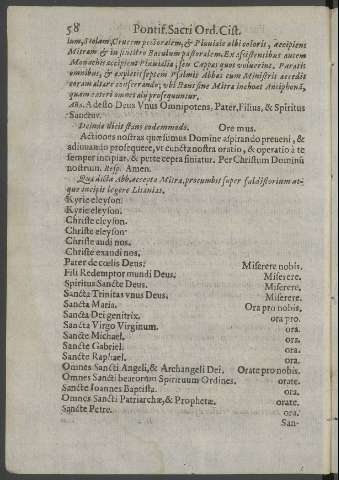 58 Pontif. Sacri Ord. Cist.
lum, Stolam, Crucem pectoralem, & Pluuiale albi coloris, accipiens
Mitram & in sinistro Baculum pastoralem. Ex assistentibus autem
Monachis accipient Pluuialia, seu Cappas quos voluerint. Paratis
omnibus, & expletis septem Psalmis Abbas cum Ministris accedit
coram altare consecrando; vbi stans sine Mitra inchoat Antiphonã,
quam cæteri omnes prosequuntur.
Añа. Adesto Deus Vnus Omnipotens, Pater, Filius, & Spiritus
Sanctus.
Deinde dicit stans eodem modo. Oremus.
Actiones nostras quæsumus Domine aspirando preueni, &
adiuuando prosequere, vt cuncta nostra oratio, & operatio à te
semper incipiat, & per te cepta finiatur. Per Christum Dominũ
nostrum. Resp. Amen.
Qua dicta Abb. accepta Mitra, procumbit super faldistorium at-
que incipit legere Litanias.
Kyrie eleyson.
Kyrie eleyson.
Christe eleyson.
Christe eleyson.
Christe audi nos.
Christe exaudi nos.
Pater de cœlis Deus. Miserere nobis.
Fili Redemptor mundi Deus. Miserere.
Spiritus Sancte Deus. Miserere.
Sancta Trinitas vnus Deus. Miserere.
Sancta Maria. Ora pro nobis.
Sancta Dei genitrix. ora pro.
Sancta Virgo Virginum. ora.
Sancte Michael. ora.
Sancte Gabriel. ora.
Sancte Raphael. ora.
Omnes Sancti Angeli, & Archangeli Dei. Orate pro nobis.
Omnes Sancti beatorum Spirituum Ordines. orate.
Sancte Ioannes Baptista. ora.
Omnes Sancti Patriarchæ, & Prophetæ. orate.
Sancte Petre. ora.
San-